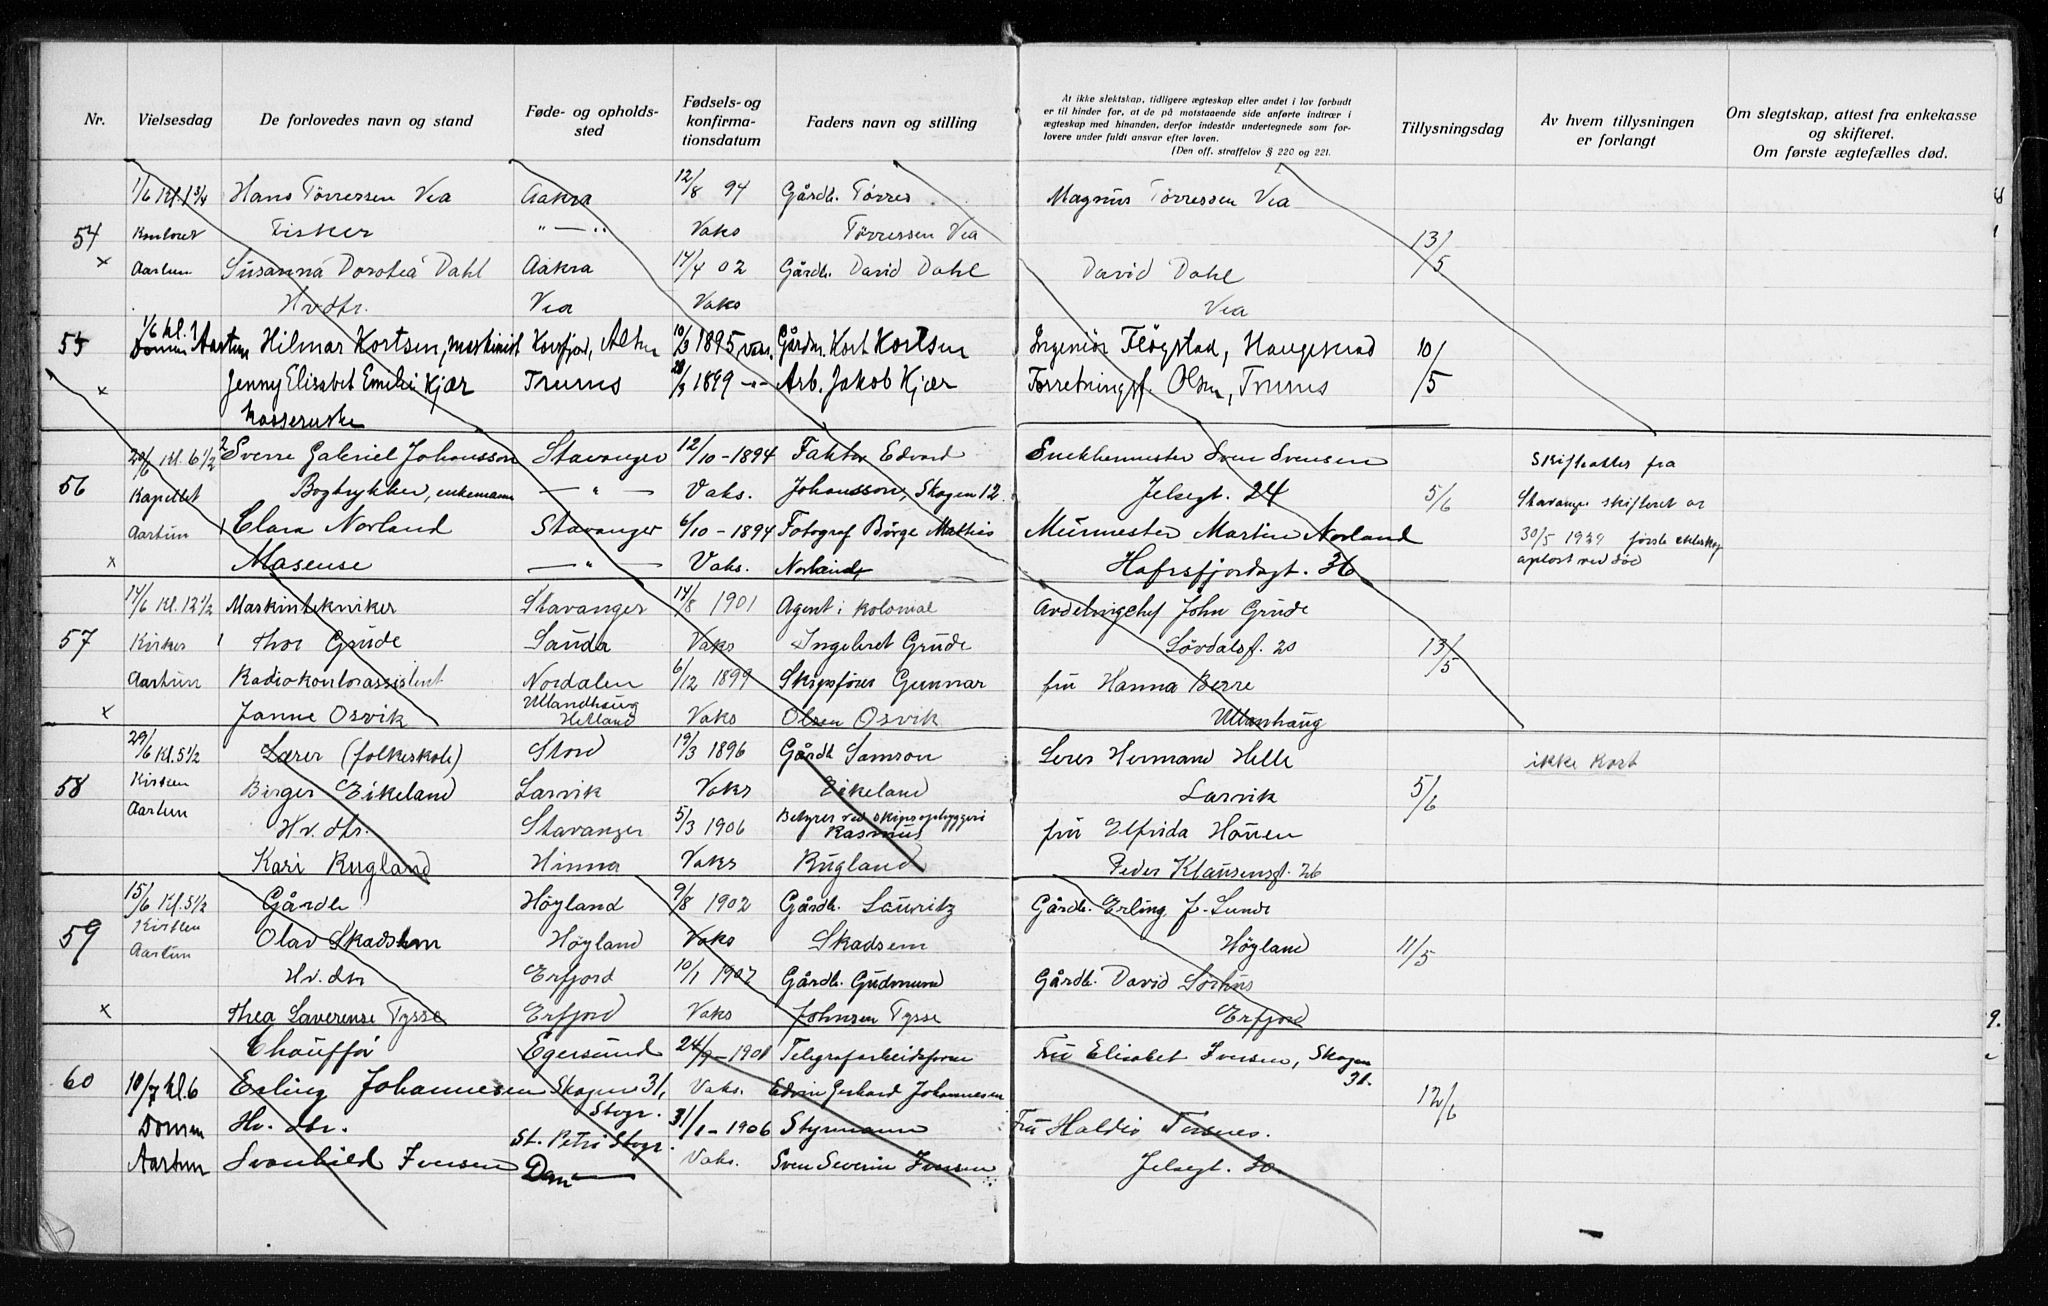 Nr. Vielsesdag De forlovedes navn og stand Føde- og opholds-sted Fødsels- og konfirma-tionsdatum Faders navn og stilling At ikke slektskap, tidligere ægteskap eller andet i lov forbudt er til hinder for, at de på motstaaende side anførte indtrær i ægteskap med hinanden, derfor indestår undertegnede som for-lovere under fuldt ansvar efter loven. [Den off. straffelov § 220 og 221. Tillysningsdag Av hvem tillysningen er forlangt Om slegtskap, attest fra enkekasse og skifteret. Om første ægtefælles død.
1/6 Kl. 1 3/4 Hans Tørressen Vea Aakra 12/8 94 Gårdb. Tørres Magnus Tørressen Vea
54 Kontoret Fisker " — " Vaks Tørressen Vea 13/5
x Aartun Susanna Dorotea Dahl Aakra 17/4 02 Gårdb. David Dahl David Dahl
Hv. dtr. Vea Vaks Vea
1/6 kl. 1
55 Domen Aartun Hilmar Kortsen, maskinist Korsfjord, Alten 1895 vaks. Gårdm. Kort Kortsen Ingeniør Fløgstad, Haugesund 10/5
x Jenny Elisabet Emilie Kjær Tromsø 1899 -"- Arb. Jakob Kjær Forretningsf. Olsen, Tromsø
Kassererske
20/6 Kl. 6 1/2 2 Sverre Gabriel Johansson Stavanger 12/10 - 1894 Faktor Edvard Snekkermester Sven Svensen Skifteattest fra
56 Kapellet Bogtrykker, enkemann — " — Vaks. Johansson, Skagen 12. Jelsegt. 24 5/6 Stavanger skifteret av
Aartun 1 Clara Norland Stavanger 6/10 - 1894 Fotograf Børge Mathias Murmester Martin Norland 30/5 1929 første ekteskap
x Maseuse — " — Vaks. Norland Hafrsfjordgt. 36 opløst ved død
14/6 Kl. 12 1/2 Maskintekniker Stavanger 14/8 1901 Agent i kolonial Avdelingchef John Grude
57 Kirken 1 Thor Grude Sauda Vaks Ingebret Grude Løvdalsf. 20 13/5
Aartun Radiokontorassistent Nordalen 6/12 1899 Skipsfører Gunnar fru Hanna Berre
x Janne Osvik Ullandhaug Hetland Vaks Olsen Osvik Ullanhaug
29/6 Kl. 5 1/2 Lærer (folkeskole) Stord 19/3 1896 Gårdb. Samson Lærer Hermand Helle ikke Kort
58 Kirken Birger Eikeland Larvik Vaks Eikeland Larvik 5/6
Aartun Hv. dtr. Stavanger 5/3 1906 Betyrer ved skipsophyggeri Rasmus fru Elfrida Houen
Kari Rugland Hinna Vaks Rugland Peder Klausensgt. 26
15/6 Kl. 5 1/2 Gårdb. Høyland 9/8 1902 Gårdb. Lauritz Gårdb. Erling J. Lunde
59 Kirken Aartun Olav Skadsem Høyland Vaks Skadsem Høyland 11/5
Hv. dtr Erfjord 10/1 1907 Gårdb. Gudmund Gårdb. David Sørhus
x Thea Laverense Tysse Erfjord Vaks Johnsen Tysse Erfjord
Chauffør Egersund 24/9 - 1901 Telegrafarbeidsforma Fru Elisabet Iversen, Skagen 31.
60 10/7 kl. 6 Erling Johannesen Skagen 31, Stvgr. Vaks. Edvin Gerhard Johannesen 12/6
Domen Hv. dtr. St. Petri Stvgr. 31/1 - 1906 Styrmann Fru Haldis Torsnes.
Aartun Svanhild Iversen Dom — Vaks. Sven Severin Iversen Jelsegt. 30.